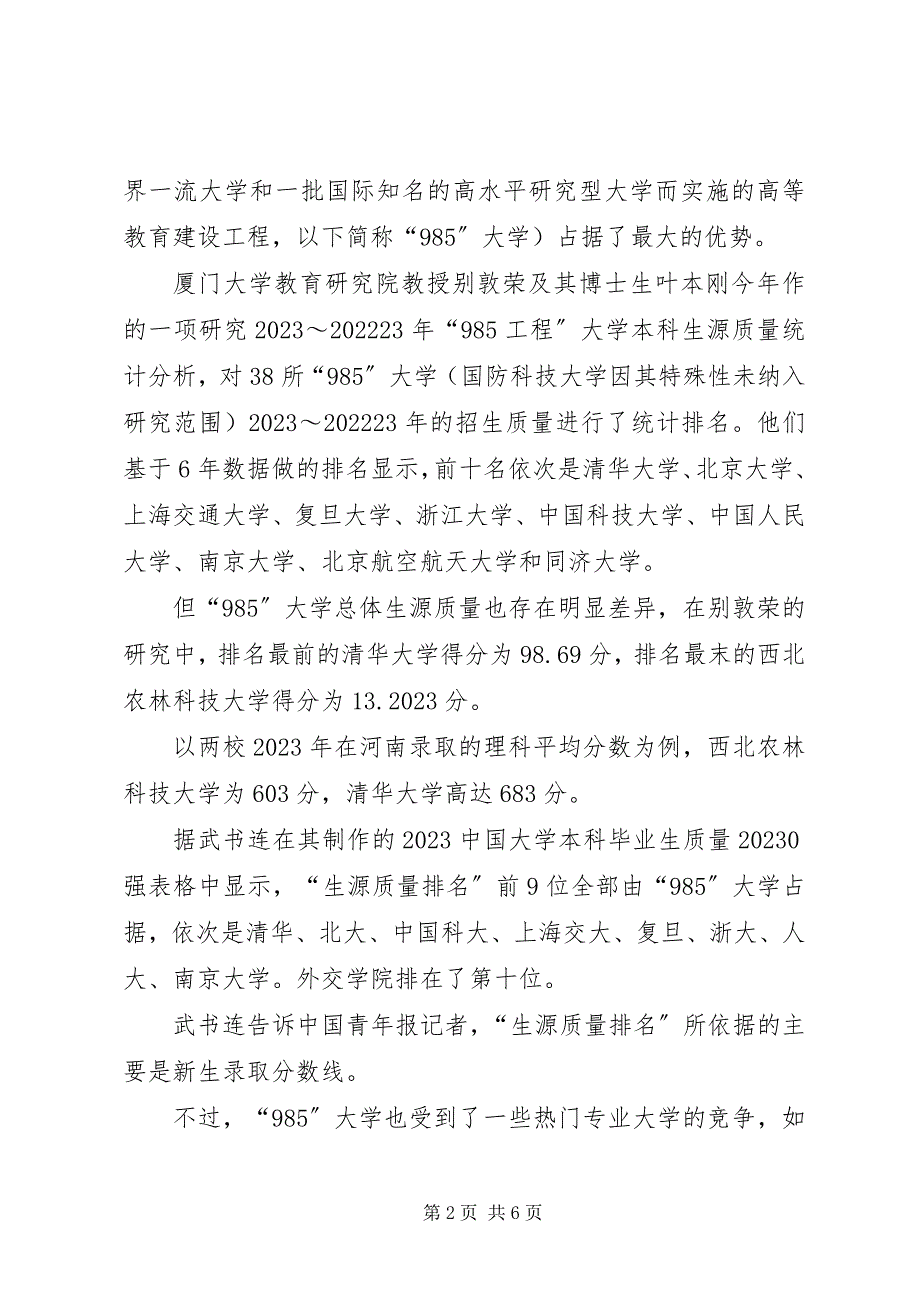 界一流大学和一批国际知名的高水平研究型大学而实施的高等
教育建设工程，以下简称“985〞大学）占据了最大的优势。
厦门大学教育研究院教授别敦荣及其博士生叶本刚今年作
的一项研究 2023～202223 年“985 工程〞大学本科生源质量统
计分析，对 38 所“985〞大学（国防科技大学因其特殊性未纳入
研究范围）2023～202223 年的招生质量进行了统计排名。他们
基于 6 年数据做的排名显示，前十名依次是清华大学、北京大学、
上海交通大学、复旦大学、浙江大学、中国科技大学、中国人民
大学、南京大学、北京航空航天大学和同济大学。
但“985〞大学总体生源质量也存在明显差异，在别敦荣的
研究中，排名最前的清华大学得分为 98.69 分，排名最末的西北
农林科技大学得分为 13.2023 分。
以两校 2023 年在河南录取的理科平均分数为例，西北农林
科技大学为 603 分，清华大学高达 683 分。
据武书连在其制作的 2023 中国大学本科毕业生质量 20230
强表格中显示，“生源质量排名〞前 9 位全部由“985〞大学占
据，依次是清华、北大、中国科大、上海交大、复旦、浙大、人
大、南京大学。外交学院排在了第十位。
武书连告诉中国青年报记者，“生源质量排名〞所依据的主
要是新生录取分数线。
不过，“985〞大学也受到了一些热门专业大学的竞争，如
第 2 页 共 6 页